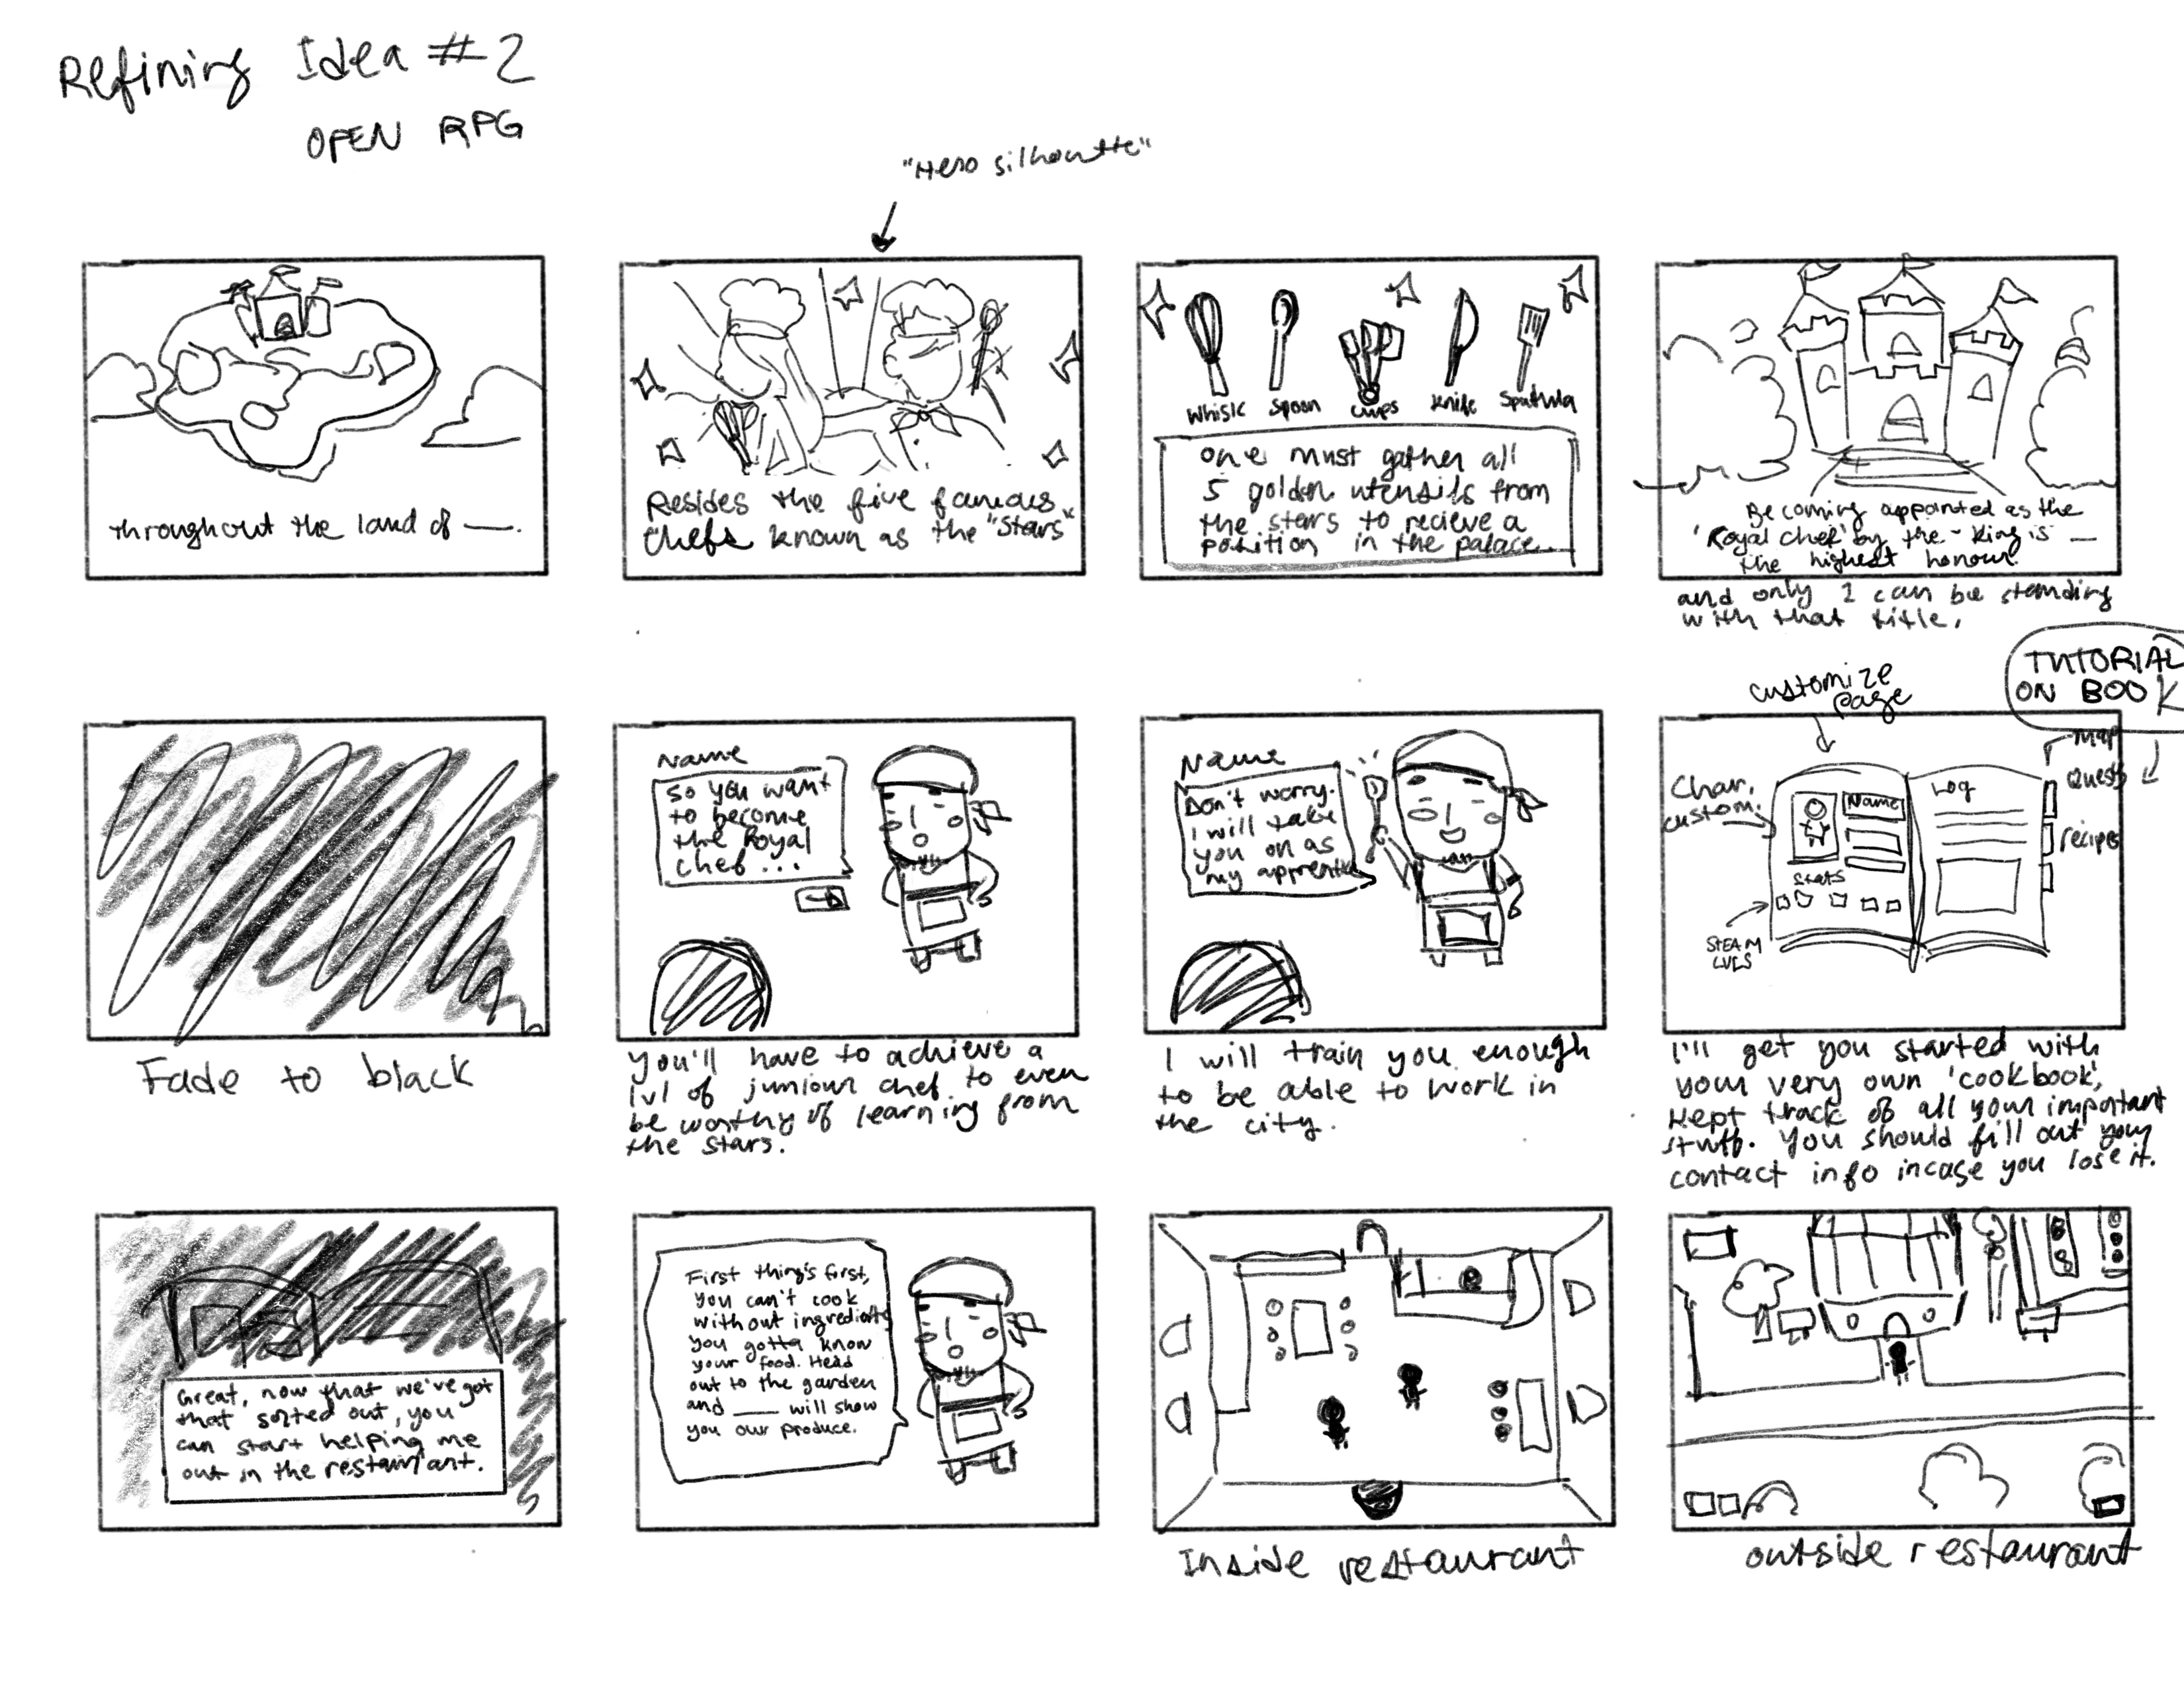 Refining Idea #2
OPEN RPG
"Hero silhoutte"
throughout the land of ___.
Resides the five famous
chefs known as the "Stars"
Whisk Spoon cups knife Spatula
one must gather all
5 golden utensils from
the stars to recieve a
position in the palace.
Becoming appointed as the
'Royal chef' by the king is
the highest honour.
and only 1 can be standing
with that title.
Fade to black
Name
So you want
to become
the Royal
chef...
You'll have to achieve a
lvl of juniour chef to even
be worthy of learning from
the stars.
Name
Don't worry.
I will take
you on as
my apprentice
I will train you enough
to be able to work in
the city.
customize
page
TUTORIAL
ON BOOK
map
Quests
recipes
Char.
custom.
Name
Log
Stats
STEAM
LVLS
I'll get you started with
your very own 'cookbook',
kept track of all your important
stuff. You should fill out your
contact info incase you lose it.
Great, now that we've got
that sorted out, you
can start helping me
out in the restaurant.
First thing's first,
you can't cook
without ingredients
you gotta know
your food. Head
out to the garden
and ___ will show
you our produce.
Inside restaurant
outside restaurant